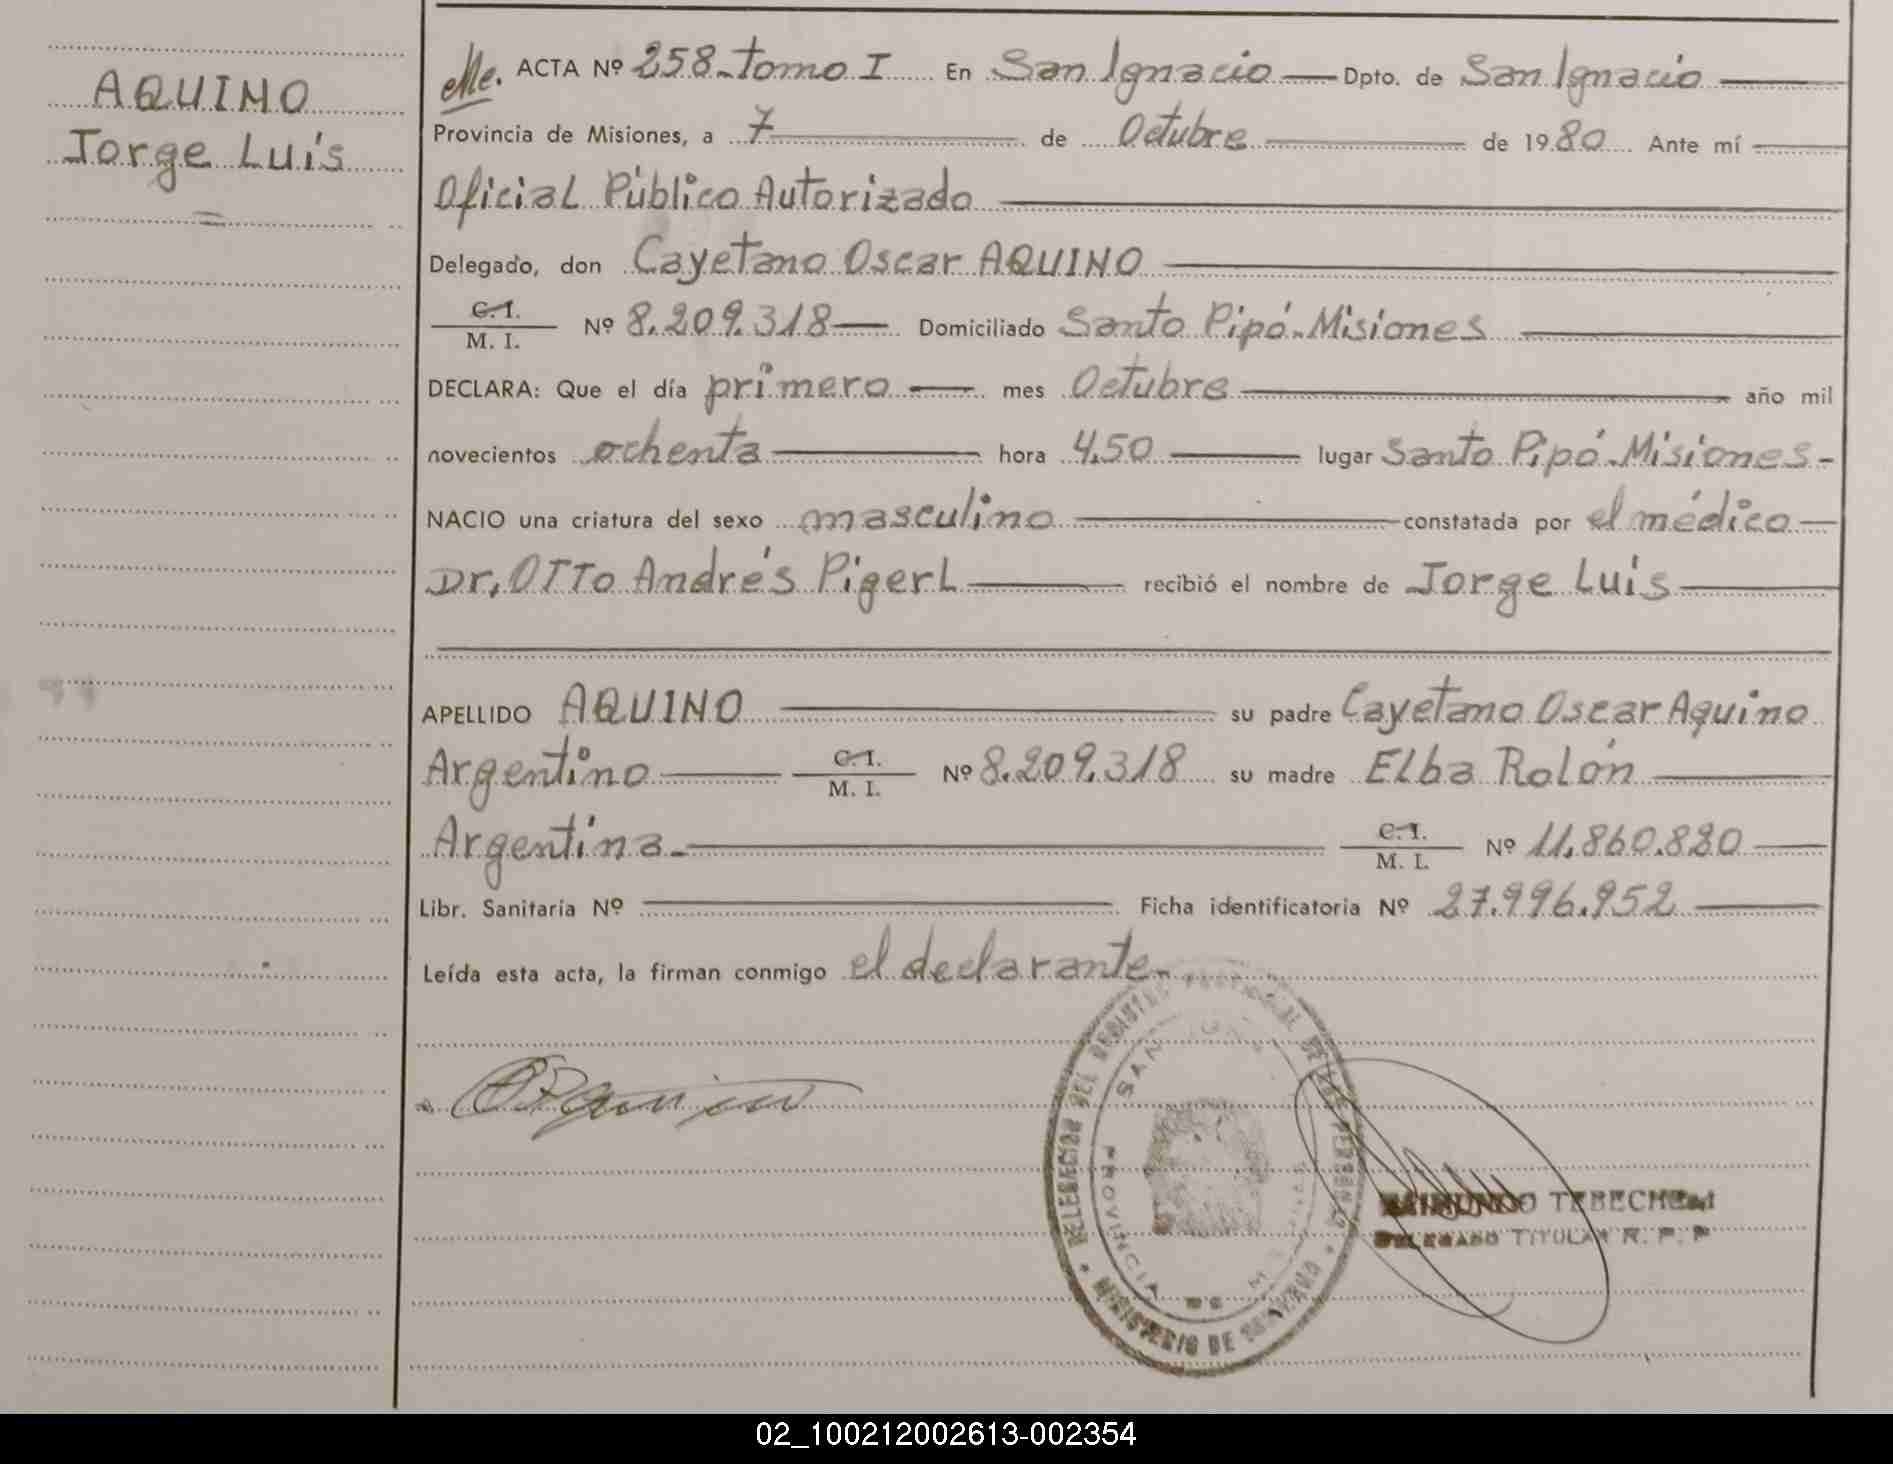 AQUINO
Jorge Luís
ACTA Nº 258-Tomo I En San Ignacio Dpto. de San Ignacio
Provincia de Misiones, a 7 de Octubre de 1980 Ante mí
Oficial Público Autorizado
Delegado, don Cayetano Oscar AQUINO
C.I.
M. I. Nº 8.209.318 Domiciliado Santo Pipó-Misiones
DECLARA: Que el día primero mes Octubre año mil
novecientos ochenta hora 4.50 lugar Santo Pipó-Misiones-
NACIO una criatura del sexo masculino constatada por el médico
Dr. OTTo Andrés Pigerl recibió el nombre de Jorge Luís
APELLIDO AQUINO su padre Cayetano Oscar Aquino
Argentino C.I. M. I. Nº 8.209.318 su madre Elba Rolón
Argentina- C.I. M. I. Nº 11.860.880
Libr. Sanitaria Nº Ficha identificatoria Nº 27.996.952
Leída esta acta, la firman conmigo el declarante-
DELEGACION DEL REGISTRO PROVINCIAL DE LAS PERSONAS
SAN IGNACIO
PROVINCIA DE MISIONES
MINISTERIO DE GOBIERNO
RAIMUNDO
DELEGADO TITULAR R. P. P
02_100212002613-002354